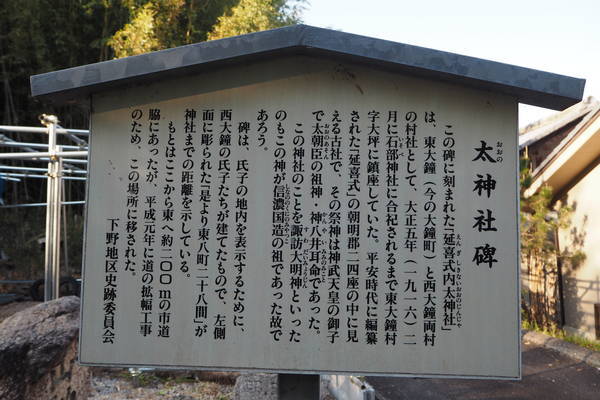 太神社碑
おおの
この碑に刻まれた『延喜式内太神社』
えんぎしきないおおのじんじゃ
は、東大鐘（今の大鐘町）と西大鐘両村
の村社として、大正五年（一九一六）二
月に石部神社に合祀されるまで東大鐘村
いそべ
字大坪に鎮座していた。平安時代に編纂
された『延喜式』の朝明郡二四座の中に見
える古社で、その祭神は神武天皇の御子
で太朝臣の祖神・神八井耳命であった。
おおのあそん
かんやいみみのみこと
この神社のことを諏訪大明神といった
のもこの神が信濃国造の祖であった故で
しなののくにのみやつこ
あろう。
碑は、氏子の地内を表示するために、
西大鐘の氏子たちが建てたもので、左側
面に彫られた『是より東八町二十八間』が
神社までの距離を示している。
もとはここから東へ約二〇〇mの市道
脇にあったが、平成元年に道の拡幅工事
のため、この場所に移された。
下野地区史跡委員会